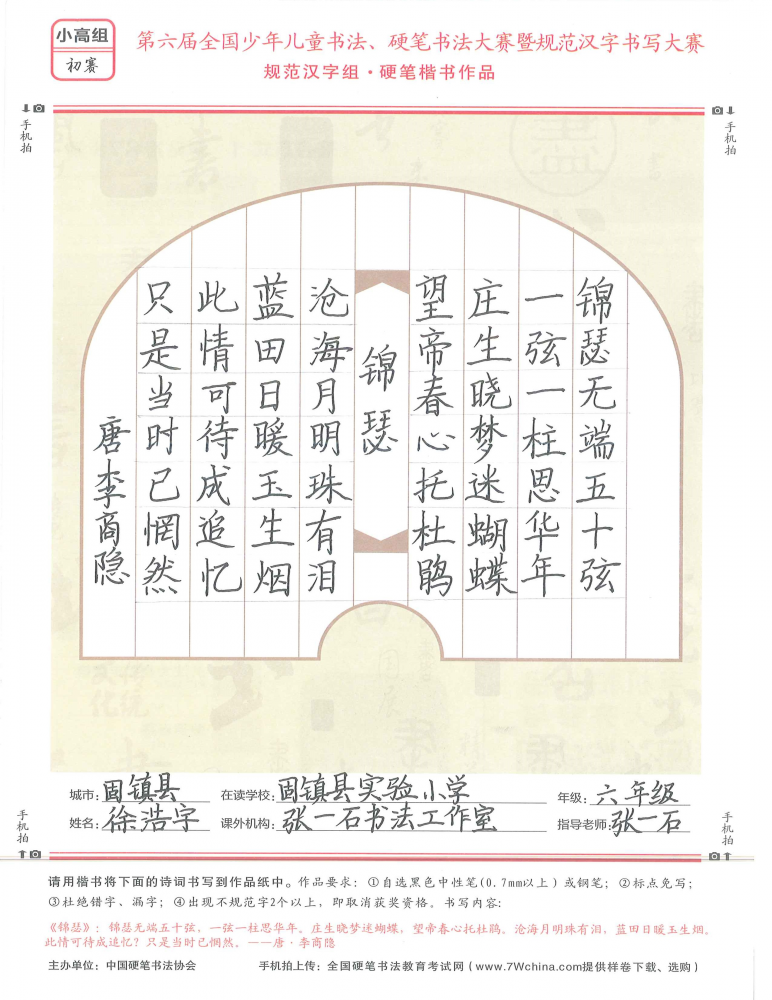 小高组
初赛
第六届全国少年儿童书法、硬笔书法大赛暨规范汉字书写大赛
规范汉字组·硬笔楷书作品
手机拍
手机拍
锦瑟无端五十弦
一弦一柱思华年
庄生晓梦迷蝴蝶
望帝春心托杜鹃
锦瑟
沧海月明珠有泪
蓝田日暖玉生烟
此情可待成追忆
只是当时已惘然
唐李商隐
城市：固镇县 在读学校：固镇县实验小学 年级：六年级
姓名：徐浩宇 课外机构：张一石书法工作室 指导老师：张一石
手机拍
手机拍
请用楷书将下面的诗词书写到作品纸中。作品要求：①自选黑色中性笔(0.7mm以上）或钢笔；②标点免写；
③杜绝错字、漏字；④出现不规范字2个以上，即取消获奖资格。书写内容：
《锦瑟》：锦瑟无端五十弦，一弦一柱思华年。庄生晓梦迷蝴蝶，望帝春心托杜鹃。沧海月明珠有泪，蓝田日暖玉生烟。
此情可待成追忆？只是当时已惘然。——唐·李商隐
主办单位：中国硬笔书法协会 手机拍上传：全国硬笔书法教育考试网（www.7Wchina.com提供样卷下载、选购）